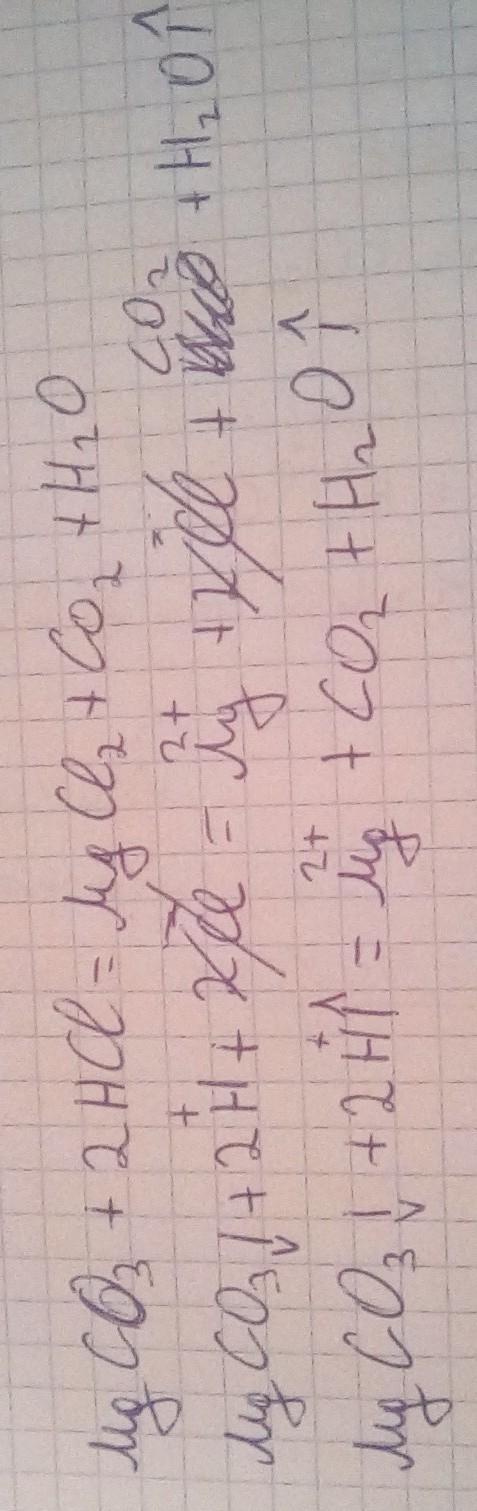 MgCO₃ + 2HCl = MgCl₂ + CO₂ + H₂O
MgCO₃↓ + 2H⁺ + 2Cl⁻ = Mg²⁺ + 2Cl⁻ + CO₂ + H₂O↑
MgCO₃↓ + 2H⁺↑ = Mg²⁺ + CO₂ + H₂O↑